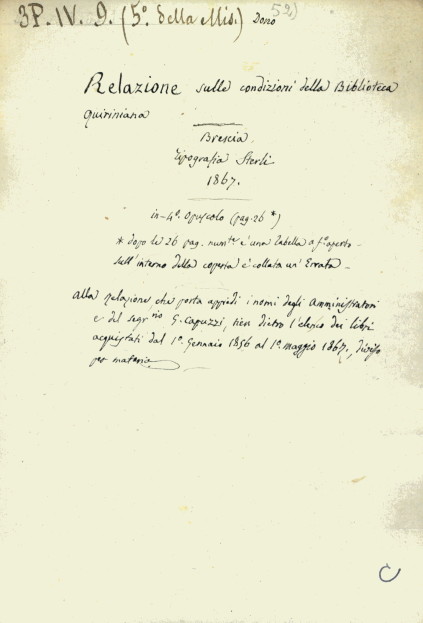 3P. IV. 9. (5º. della Mis.) Dono 52)
Relazione sulle condizioni della Biblioteca
Quiriniana
Brescia.
Tipografia Sterli
1867.
in-4º. Opuscolo (pag. 26 *)
* dopo le 26 pag. numte. è una Tabella a fº. aperto -
sull'interno della coperta è collata un' Errata -
Alla relazione che porta appiedi i nomi degli Amministratori
e del segrrio G. Capuzzi, tien dietro l'elenco dei libri
acquistati dal 1º. Gennaio 1856 al 1º. maggio 1867., diviso
per materia.
C